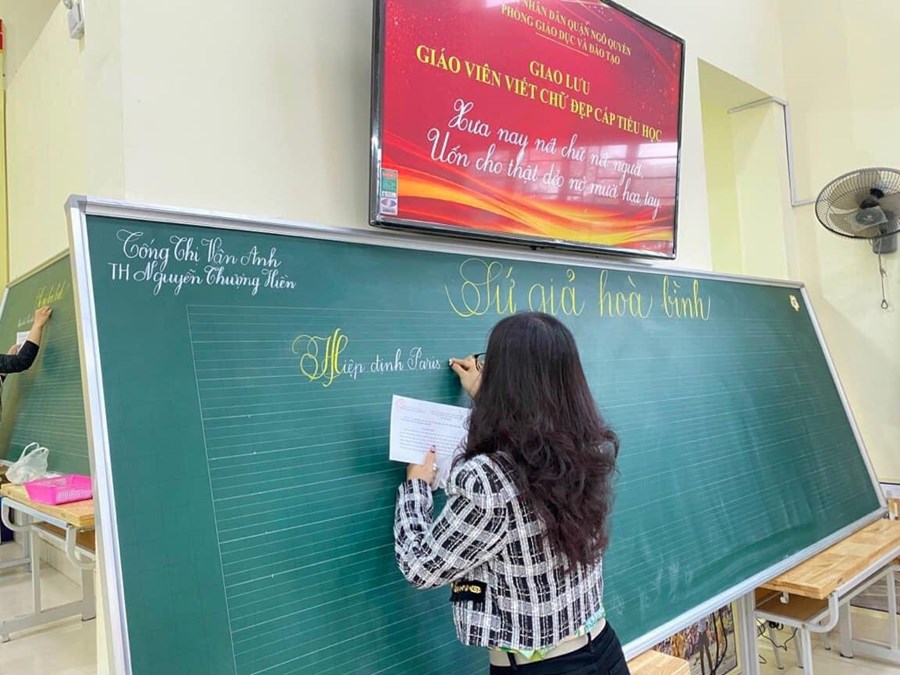 NHÂN DÂN QUẬN NGÔ QUYỀN
PHÒNG GIÁO DỤC VÀ ĐÀO TẠO
GIAO LƯU
GIÁO VIÊN VIẾT CHỮ ĐẸP CẤP TIỂU HỌC
Xưa nay nết chữ nết người
Uốn cho thật dẻo nở mười hoa tay
Tống Thi Vân Anh
TH Nguyễn Thượng Hiền
Sứ giả hoà bình
Hiệp định Paris